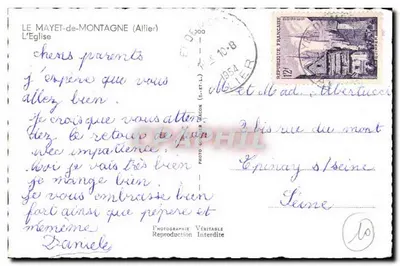 LE MAYET-de-MONTAGNE (Allier)
L'Eglise
chers parents
j'espère que vous
allez bien.
je crois que vous atten
dez le retour de
avec impatience.
moi je vais très bien
je mange bien.
je vous embrasse bien
fort ainsi que pépère et
mémème
Danièle
PHOTOGRAPHIE VÉRITABLE
Reproduction Interdite
10-8
1954
ALLIER
REPUBLIQUE FRANÇAISE
12F
M et Mad. Albertucci
bis rue du mont
Epinay s/seine
Seine
10